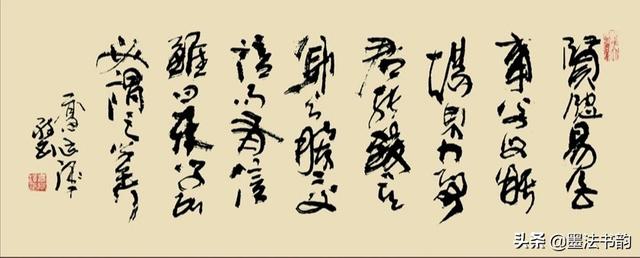 賢賢易色
事父母能
竭其力事
君能致其
身與朋友交
言而有信
雖曰未學吾
必謂之學矣
头条 @墨法书韵